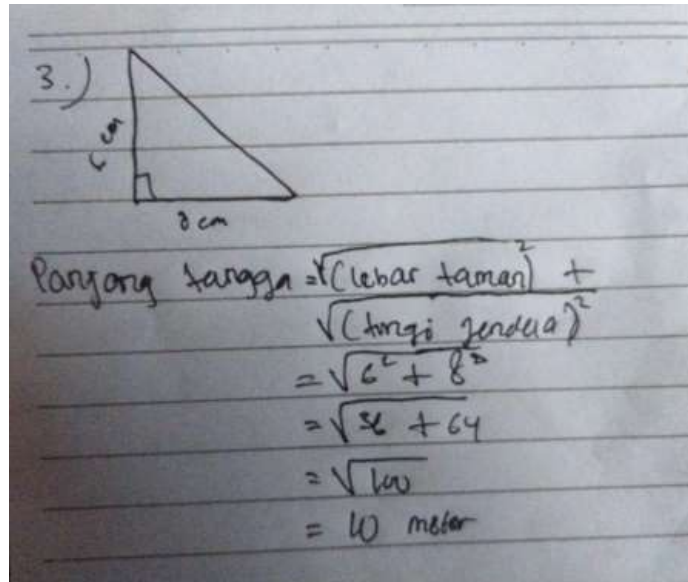 3.)
6 cm
8 cm
Panjang tangga = √(lebar taman)² +
√(tinggi jendela)²
= √6² + 8²
= √36 + 64
= √100
= 10 meter